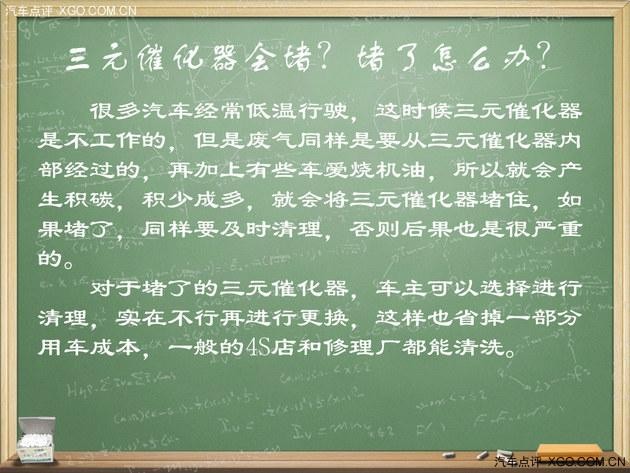 汽车点评 XGO.COM.CN
三元催化器会堵？堵了怎么办？
很多汽车经常低温行驶，这时候三元催化器
是不工作的，但是废气同样是要从三元催化器内
部经过的，再加上有些车爱烧机油，所以就会产
生积碳，积少成多，就会将三元催化器堵住，如
果堵了，同样要及时清理，否则后果也是很严重
的。
对于堵了的三元催化器，车主可以选择进行
清理，实在不行再进行更换，这样也省掉一部分
用车成本，一般的4S店和修理厂都能清洗。
汽车点评 XGO.COM.CN